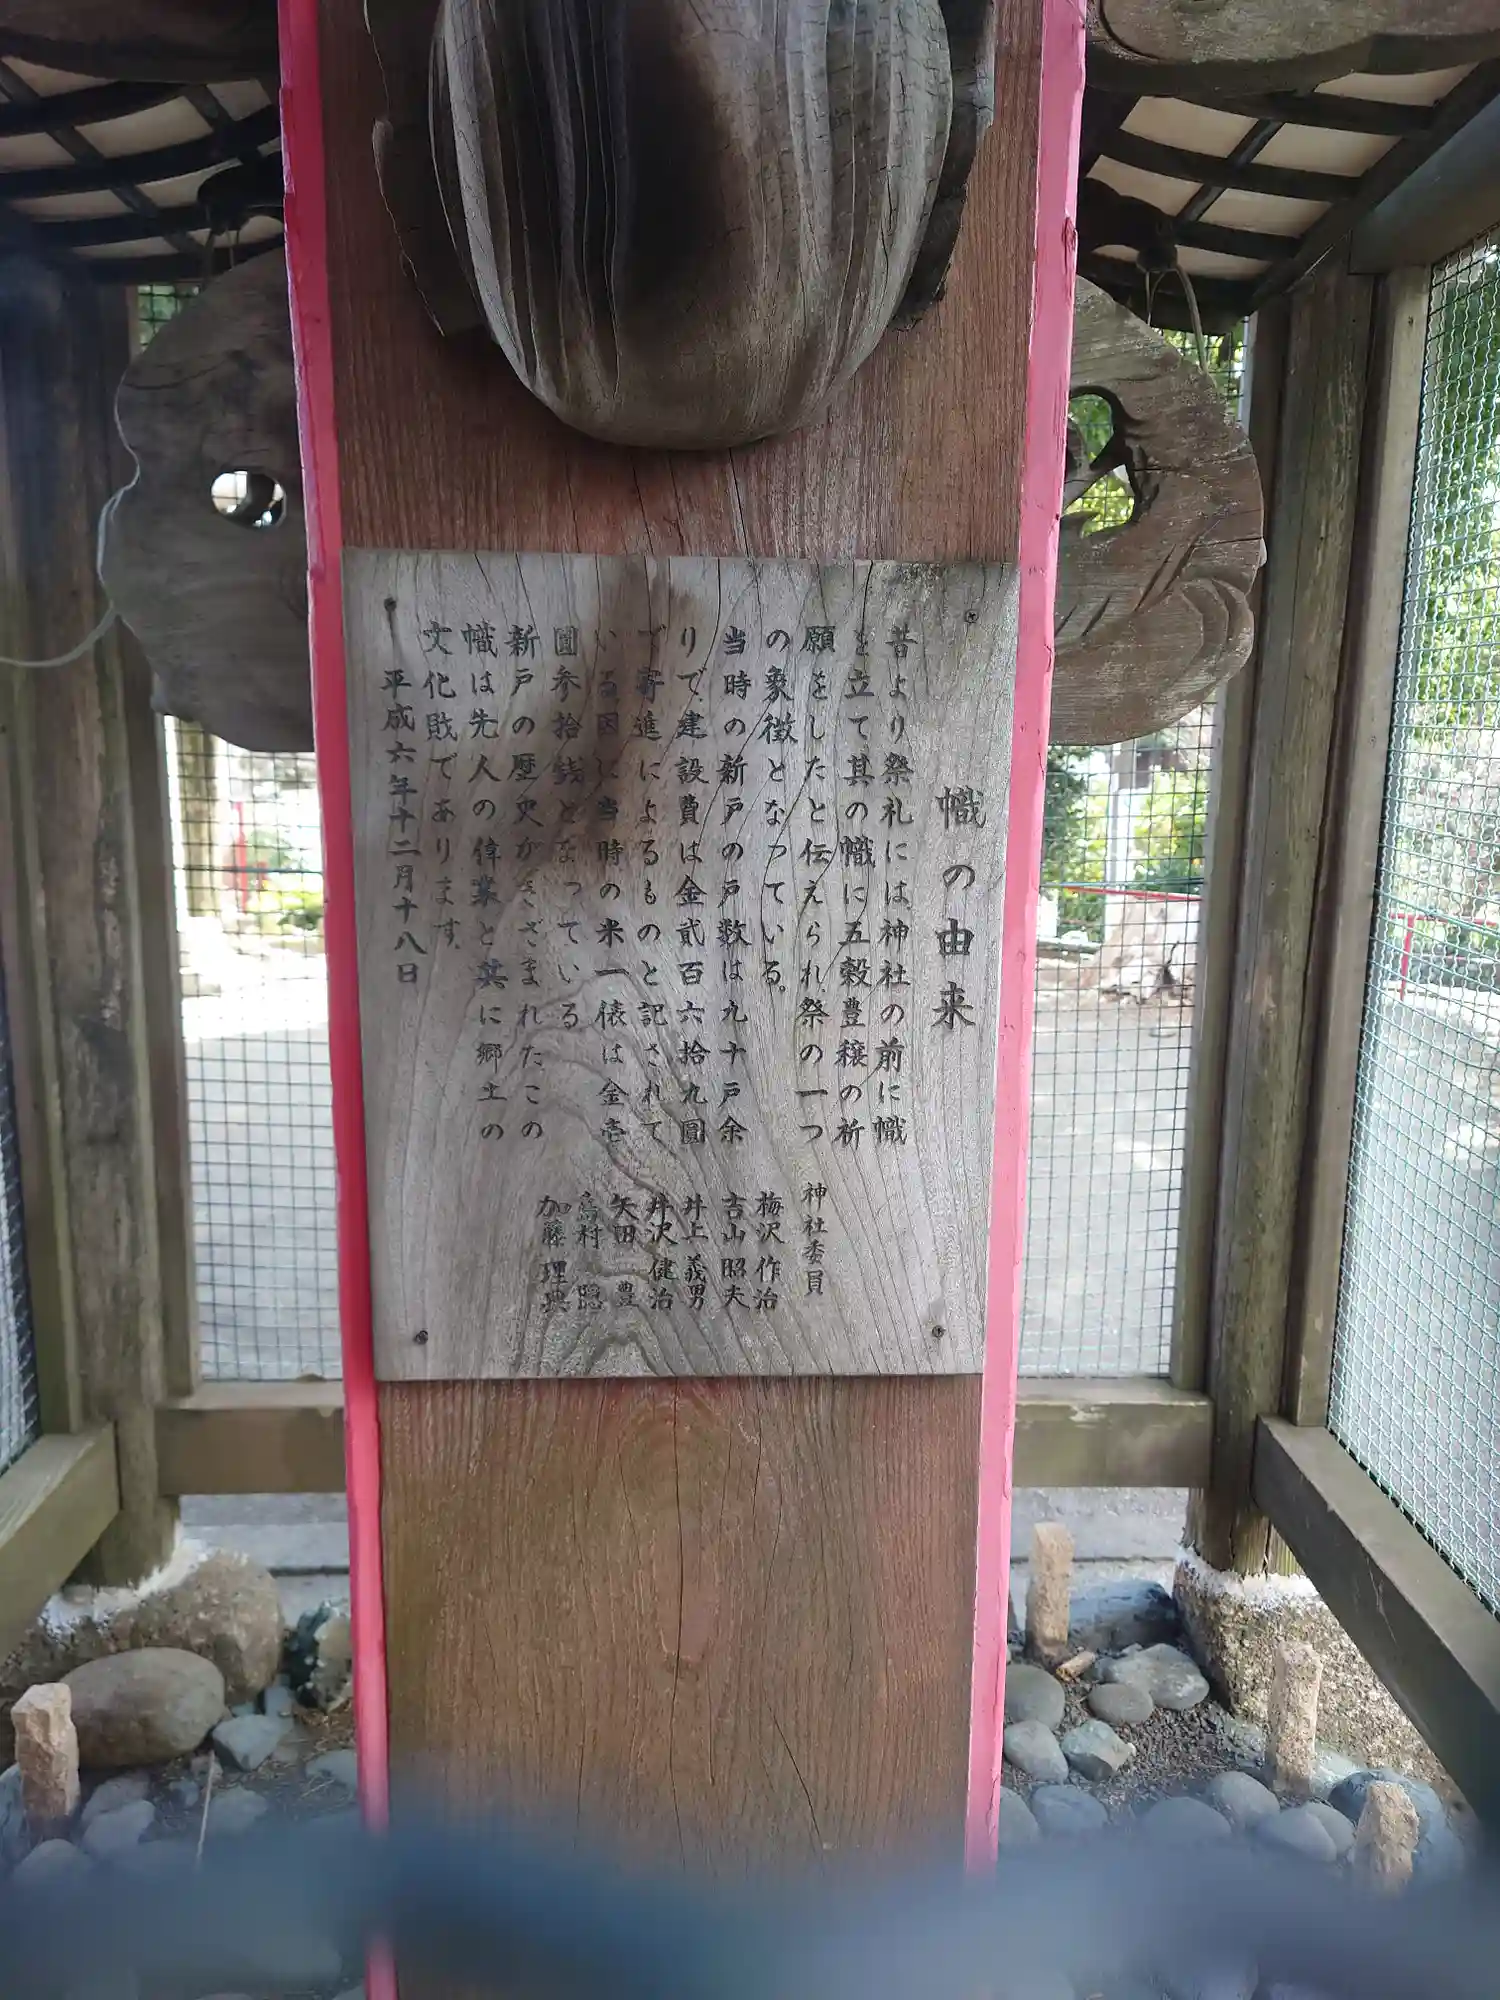 幟の由来
昔より祭礼には神社の前に幟
を立て其の幟に五穀豊穣の祈
願をしたと伝えられ祭の一つ
の象徴となっている。
当時の新戸の戸数は九十戸余
りで建設費は金貳百六拾九圓
で寄進によるものと記されて
いる因に当時の米一俵は金壱
圓参拾銭となっている
新戸の歴史がきざまれたこの
幟は先人の偉業と共に郷土の
文化財であります。
平成六年十二月十八日
神社委員
梅沢作治
吉山昭夫
井上義男
井沢健治
矢田豊
島村聡
加藤理典